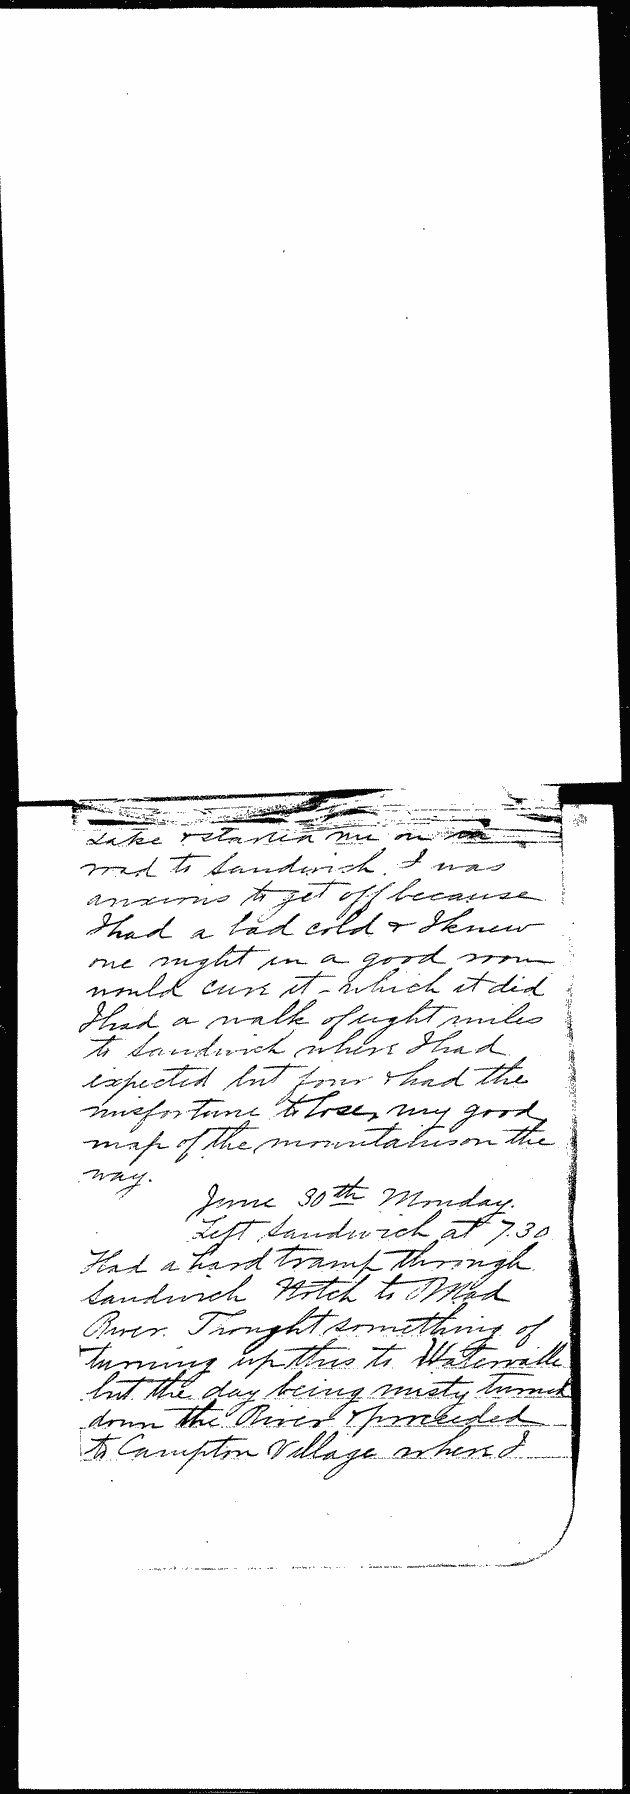 Lake & started me on
road to Sandwich. I was
anxious to get off because
I had a bad cold & I knew
one night in a good room
would cure it - which it did
I had a walk of eight miles
to Sandwich where I had
expected but four & had the
misfortune to lose my good
map of the mountains on the
way.
June 30th Monday.
Left Sandwich at 7.30
Had a hard tramp through
Sandwich Notch to Mad
River. Thought something of
turning up this to Waterville
but the day being misty turned
down the River & proceeded
to Campton Village where I